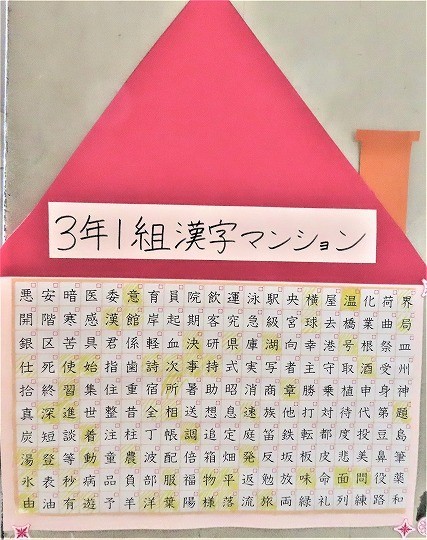 3年1組漢字マンション
悪安暗医委意育員院飲運泳駅央横屋温化荷界
開階寒感漢館岸起期客究急級宮球去橋業曲局
銀区苦具君係軽血決研県庫湖向幸港号根祭皿
仕死使始指歯詩次事持式実写者主守取酒受州
拾終習集住重宿所暑助昭消商章勝乗植申身神
真深進世整昔全相送想息速族他打対待代第題
炭短談着注柱丁帳調追定庭笛鉄転都度投豆島
湯登等動童農波配倍箱畑発反坂板皮悲美鼻筆
氷表秒病品負部服福物平返勉放味命面問役薬
由油有遊予羊洋葉陽様落流旅両緑礼列練路和